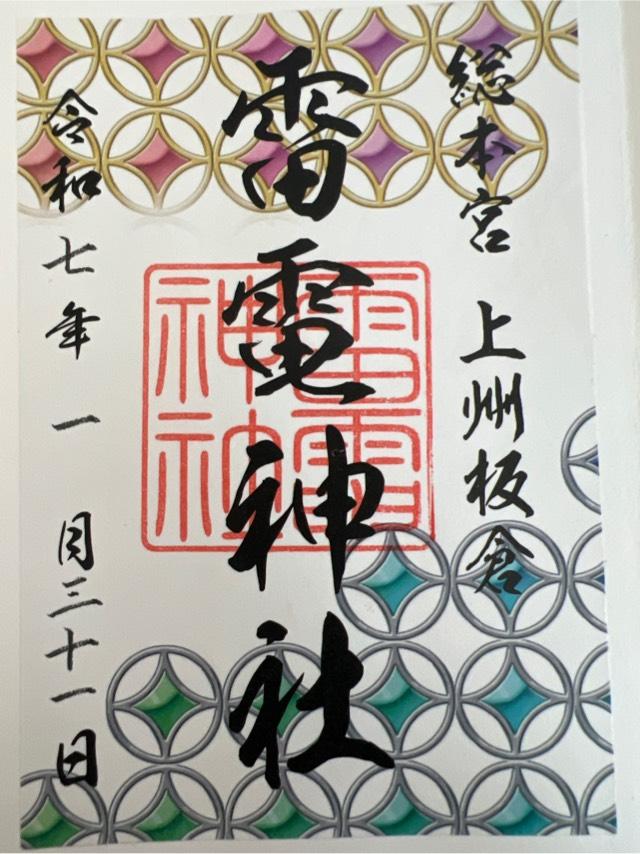 総本宮 上州板倉
雷電神社
雷電神社
令和七年一月三十一日